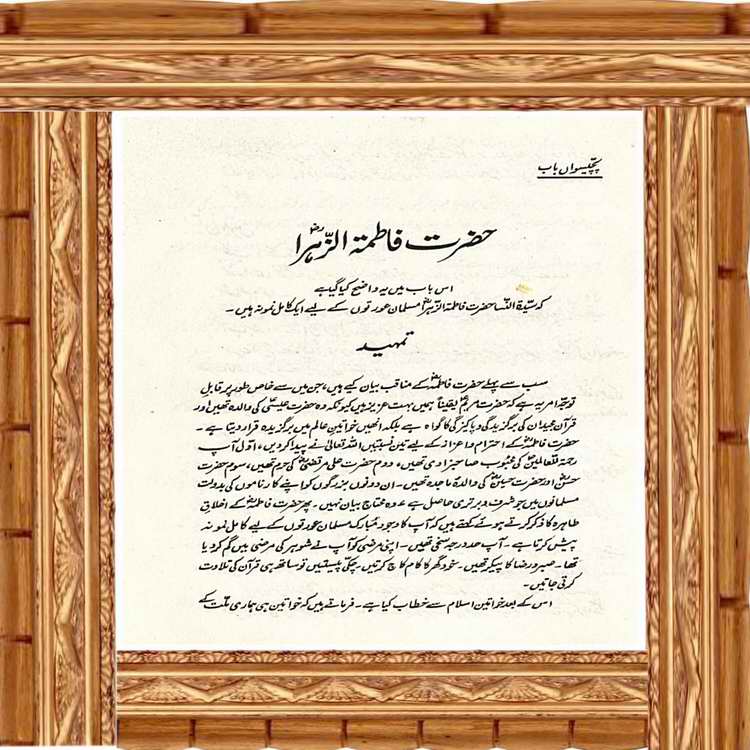 پچیسواں باب
حضرت فاطمۃ الزّہراؓ
اس باب میں یہ واضح کیا گیا ہے
کہ سیّدۃ النسا حضرت فاطمۃ الزّہراؓ مسلمان عورتوں کے لیے ایک کامل نمونہ ہیں۔
تمہید
سب سے پہلے حضرت فاطمہؓ کے مناقب بیان کیے ہیں، جن میں سے خاص طور پر قابلِ
توجہ امر یہ ہے کہ حضرت مریمؑ یقیناً ہمیں بہت عزیز ہیں کیونکہ وہ حضرت عیسیٰؑ کی والدہ تھیں اور
قرآن مجید ان کی برگزیدگی و پاکیزگی کا گواہ ہے بلکہ انھیں خواتینِ عالم میں برگزیدہ قرار دیتا ہے۔
حضرت فاطمہؓ کے احترام و اعزاز کے لیے تین نسبتیں اللہ تعالیٰ نے پیدا کر دیں، اوّل آپ
رحمۃ للعالمینؐ کی محبوب صاحبزادی تھیں، دوم حضرت علی مرتضیٰؓ کی حرم تھیں، سوم حضرت
حسنؓ اور حضرت حسینؓ کی والدۂ ماجدہ تھیں۔ ان دونوں بزرگوں کو اپنے کارناموں کی بدولت
مسلمانوں میں جو شرف و برتری حاصل ہے، وہ محتاجِ بیان نہیں۔ پھر حضرت فاطمہؓ کے اخلاقِ
طاہرہ کا ذکر کرتے ہوئے کہتے ہیں کہ آپ کا وجود مُبارک مسلمان عورتوں کے لیے کامل نمونہ
پیش کرتا ہے۔ آپ حد درجہ سخی تھیں۔ اپنی مرضی کو آپ نے شوہر کی مرضی میں گم کر دیا
تھا۔ صبر و رضا کا پیکر تھیں۔ خود گھر کا کام کاج کرتیں۔ چکّی پیستیں تو ساتھ ہی قرآن کی تلاوت
کرتی جاتیں۔
اس کے بعد خواتینِ اسلام سے خطاب کیا ہے۔ فرماتے ہیں کہ خواتین ہی ہماری ملّت کے